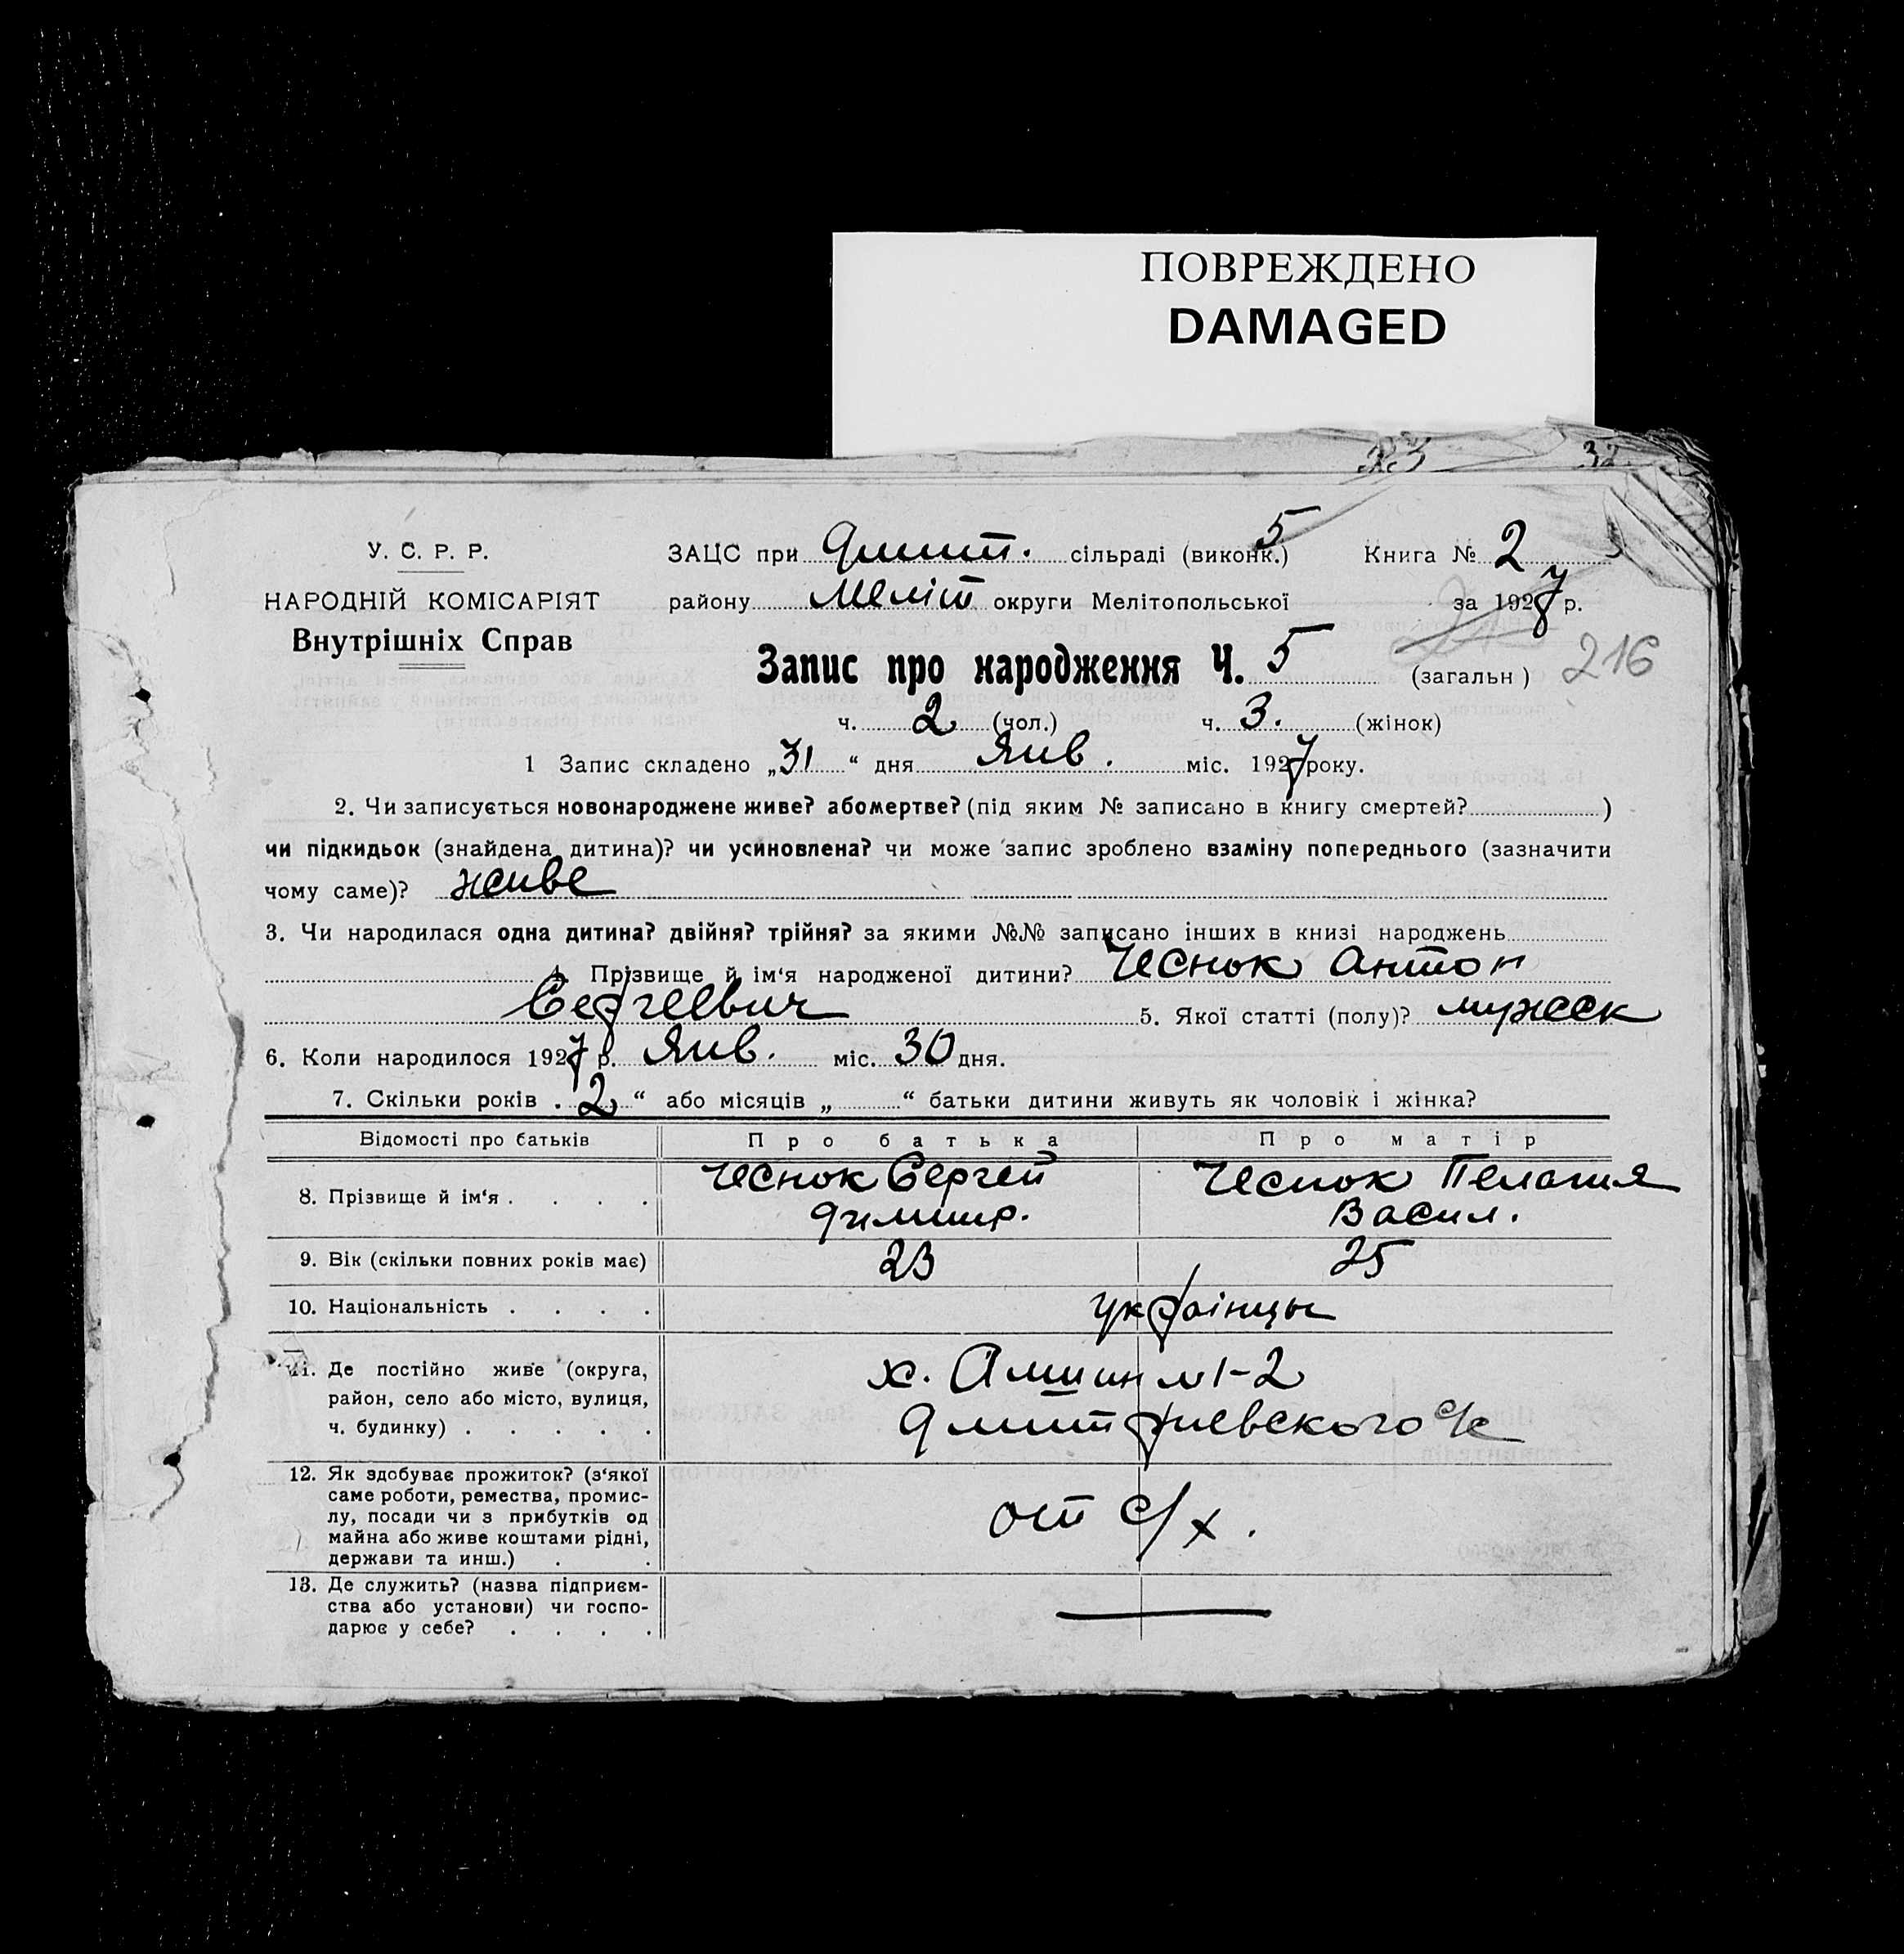 ПОВРЕЖДЕНО
DAMAGED
23 32
5
У. С. Р. Р. ЗАЦС при Дмит. сільраді (виконк.) Книга № 2
НАРОДНІЙ КОМІСАРІЯТ району Меліт округи Мелітопольської за 1927 р.
Внутрішніх Справ
Запис про народження Ч. 5 (загальн) 216
ч. 2 (чол.) ч. 3. (жінок)
1 Запис складено „31“ дня Янв. міс. 1927 року.
2. Чи записується новонароджене живе? або мертве? (під яким № записано в книгу смертей? )
чи підкидьок (знайдена дитина)? чи усиновлена? чи може запис зроблено взаміну попереднього (зазначити
чому саме)? живе
3. Чи народилася одна дитина? двійня? трійня? за якими №№ записано інших в книзі народжень
4. Прізвище й ім‘я народженої дитини? Чеснок Антон
Сергеевич 5. Якої статті (полу)? мужеск
6. Коли народилося 1927 р. Янв. міс. 30 дня.
7. Скільки років „ 2 “ або місяців „ “ батьки дитини живуть як чоловік і жінка?
Відомості про батьків Про батька Про матір
8. Прізвище й ім‘я . . . . Чеснок Сергей Чеснок Пелагия
Васил.
9. Вік (скільки повних років має) 23 25
10. Національність . . . . українцы
11. Де постійно живе (округа,
район, село або місто, вулиця,
ч. будинку) . . . . .
х. №1-2
Дмитриевского с/с
12. Як здобуває прожиток? (з‘якої
саме роботи, ремества, промис-
лу, посади чи з прибутків од
майна або живе коштами рідні,
держави та инш.) . .
от с/х.
13. Де служить? (назва підприєм-
ства або установи) чи госпо-
дарює у себе? . . . .